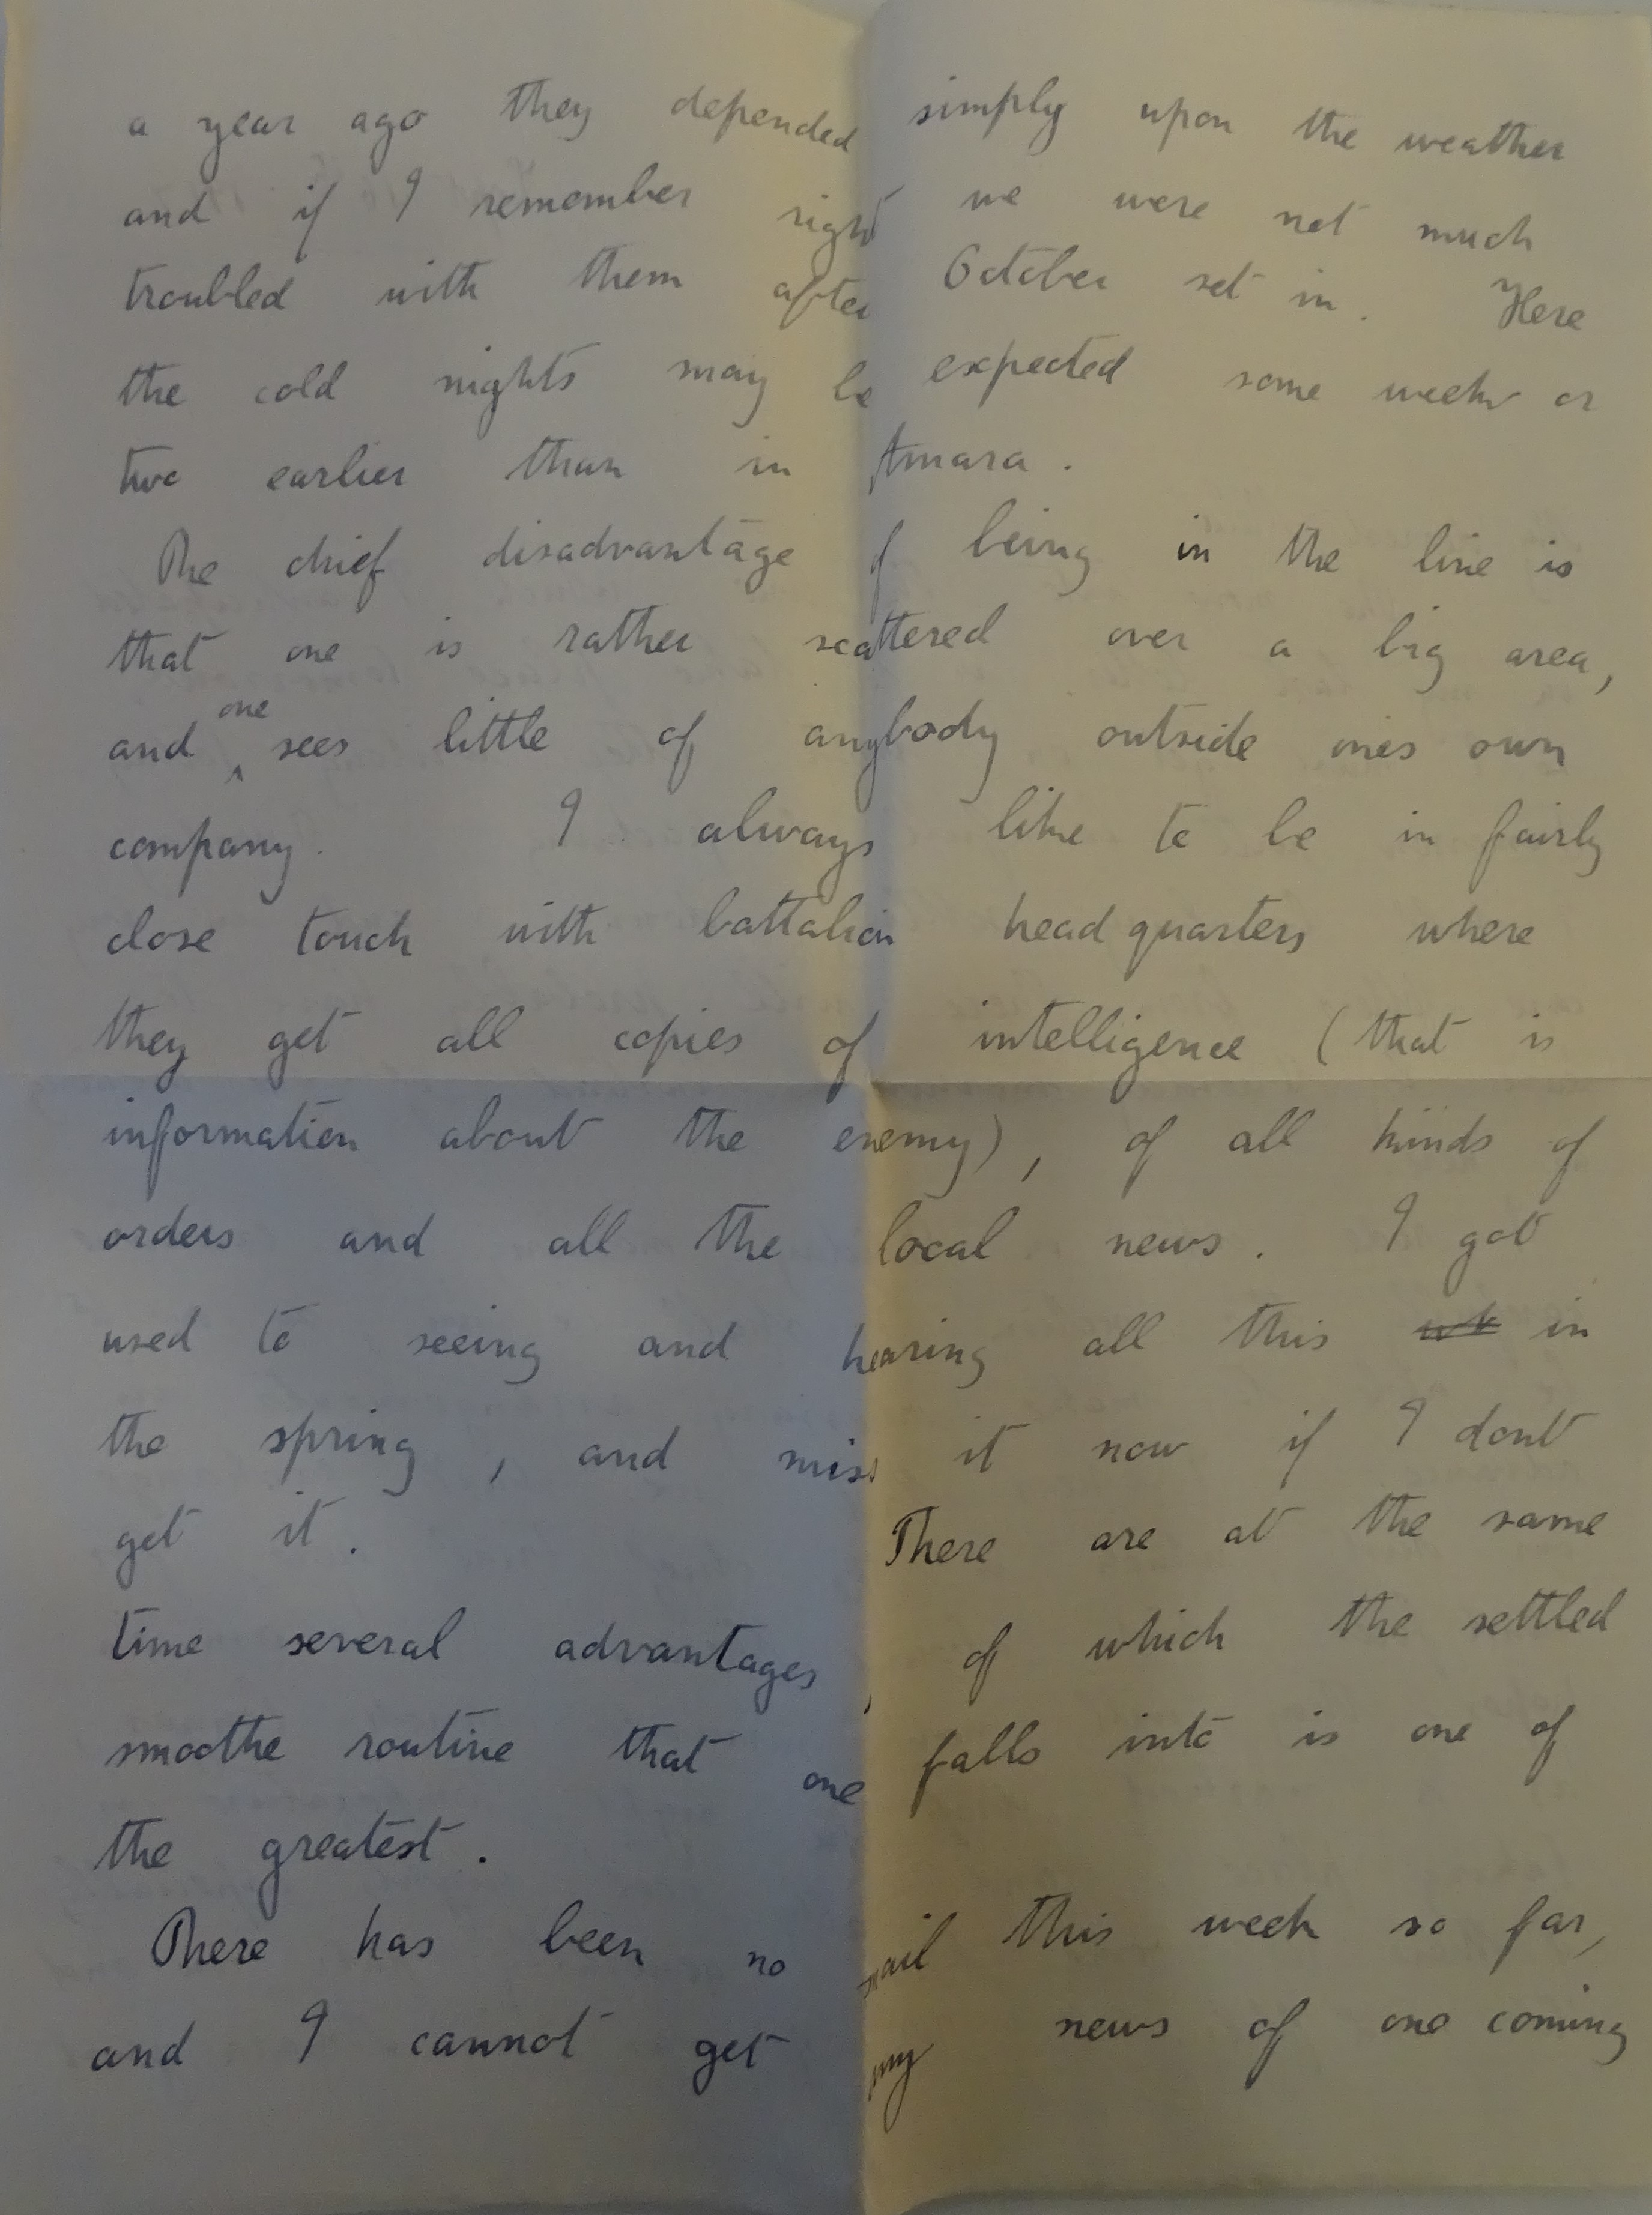 a year ago they depended simply upon the weather
and if I remember right we were not much
troubled with them after October set in. Here
the cold nights may be expected some week or
two earlier than in Amara.
The chief disadvantage of being in the line is
that one is rather scattered over a big area,
and one sees little of anybody outside ones own
company. I always like to be in fairly
close touch with battalion head quarters where
they get all copies of intelligence (that is
information about the enemy), of all kinds of
orders and all the local news. I got
used to seeing and hearing all this in
the spring, and miss it now if I dont
get it. There are at the same
time several advantages, of which the settled
smoothe routine that one falls into is one of
the greatest.
There has been no mail this week so far,
and I cannot get any news of one coming